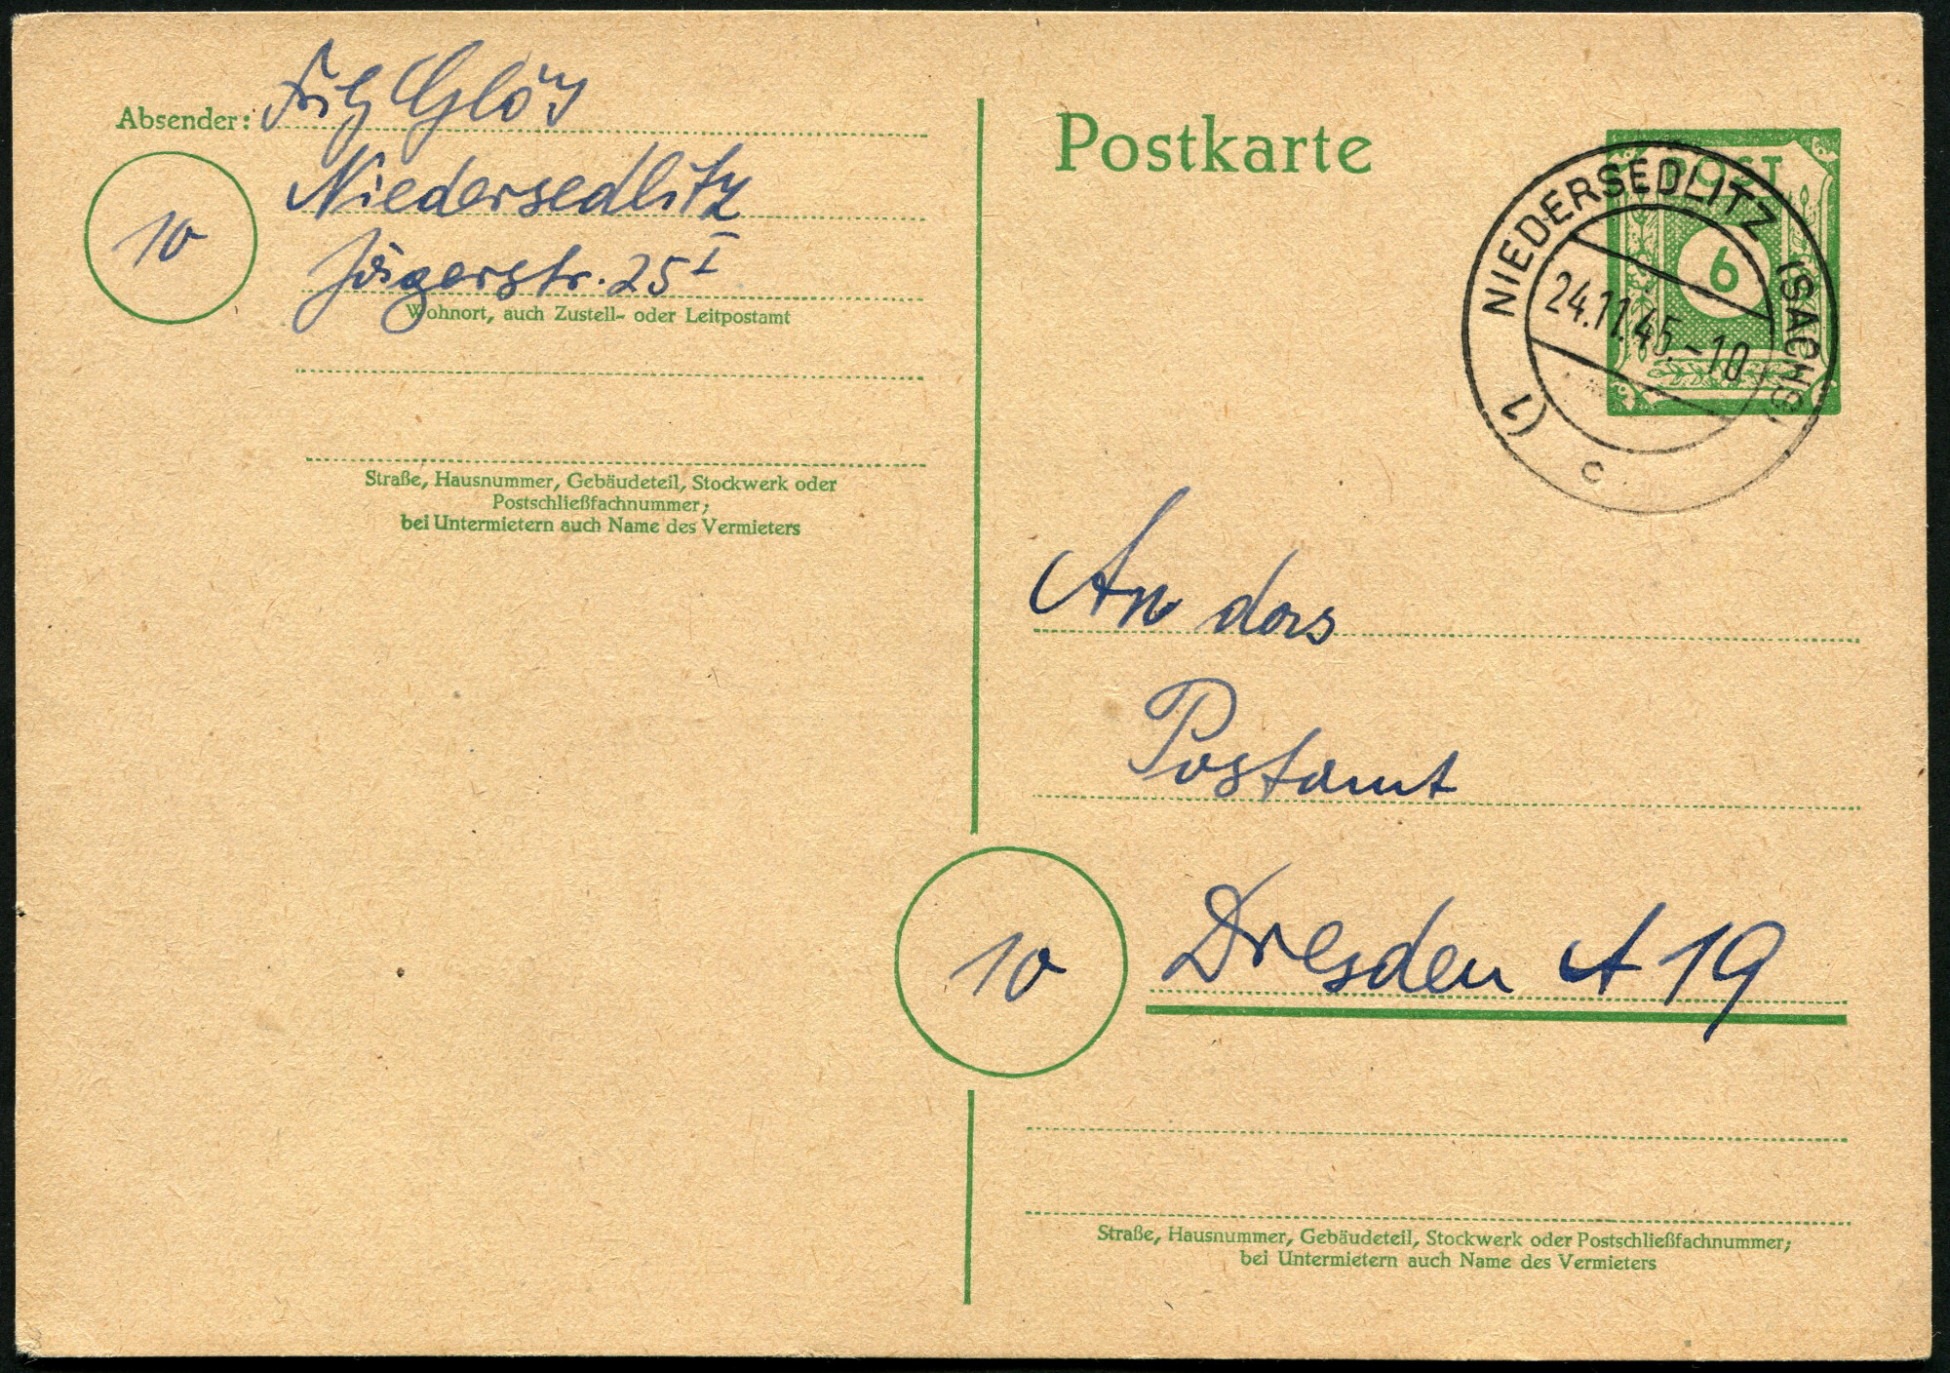 Absender: Fritz Glös
Niedersedlitz
10
Jägerstr. 25 I
Wohnort, auch Zustell- oder Leitpostamt
Straße, Hausnummer, Gebäudeteil, Stockwerk oder
Postschließfachnummer;
bei Untermietern auch Name des Vermieters
Postkarte
POST
6
NIEDERSEDLITZ (SACHS)
24.11.45.-10
(1
c
An das
Postamt
10
Dresden A 19
Straße, Hausnummer, Gebäudeteil, Stockwerk oder Postschließfachnummer;
bei Untermietern auch Name des Vermieters